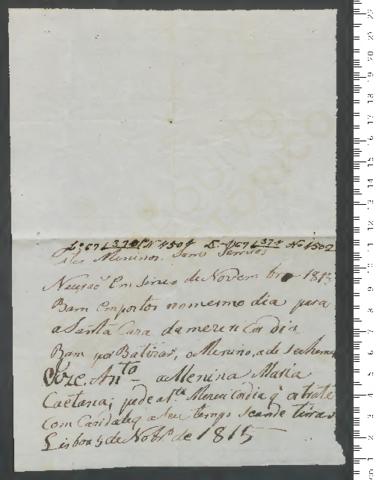 Lº 67 f 378 Nº 1501 E Lº 67 f 378 Nº 1502
Estes Meninos Sam
Nacraõ Em Sinco de Novembro 1815
Bam Empostos no mesmo dia para
a Santa Caza da merzi Cordia
Bam por Batizar, o Menino, ade se chamar
Joze Antº a Menina Maria
Caetana; pede a Sta Mizericordia q a trate
com Caridade q a seu tempo se ande tirar
Lisboa 5 de Nobrº de 1815